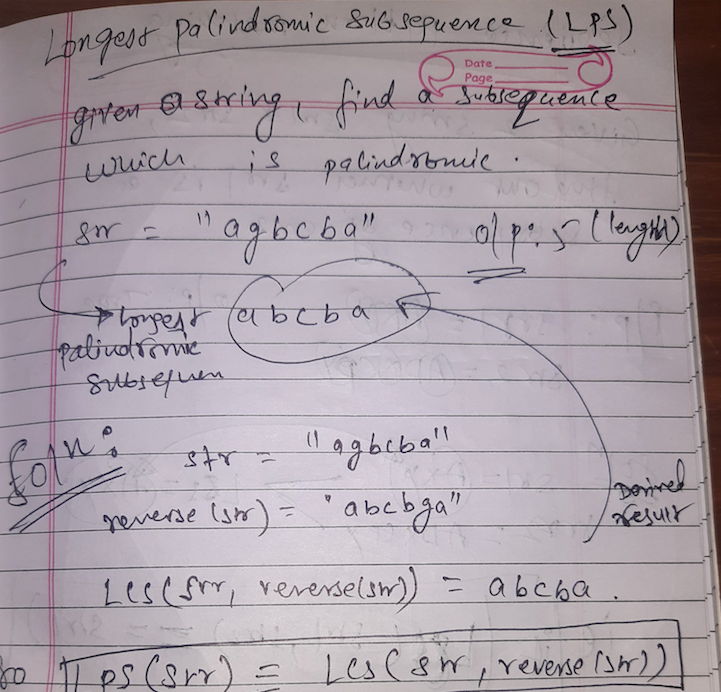 Longest Palindromic Subsequence (LPS)
Date
Page
given a string, find a subsequence
which is palindromic.
str = "agbcba" o/p: 5 (length)
Longest abcba
palindromic
subsequen
Soln:
str = "agbcba"
reverse(str) = "abcbga"
Desired
result
LCS(str, reverse(str)) = abcba.
so LPS(str) = LCS(str, reverse(str))